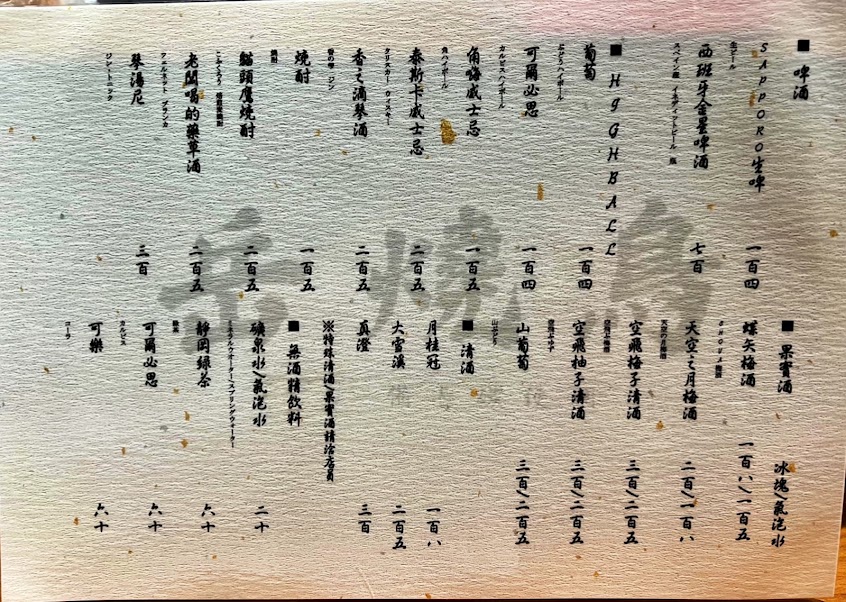 ■ 啤酒
SAPPORO生啤 一百四
生ビール
西班牙金星啤酒 七百
スペイン産 イネディットビール 瓶
■ HIGHBALL
葡萄 一百四
ぶどうハイボール
可爾必思 一百四
カルピスハイボール
角嗨威士忌 一百五
角ハイボール
泰斯卡威士忌 二百五
タリスカー ウィスキー
香之滴琴酒 二百五
香の雫 ジン
燒酎 一百五
焼酎
貓頭鷹燒酎 二百五
老闆喝的藥草酒 二百五
フェルネット ブランカ
琴湯尼 三百
ジントニック
■ 果實酒 冰塊/氣泡水
蝶矢梅酒 一百八/一百五
CHOYA梅酒
天空之月梅酒 二百/一百八
空飛梅子清酒 三百/二百五
空飛柚子清酒 三百/二百五
山葡萄 三百/二百五
山ぶどう
■ 清酒
月桂冠 一百八
大雪溪 二百五
真澄 三百
※特殊清酒/果實酒請洽店員
■ 無酒精飲料
礦泉水/氣泡水 二十
ミネラルウオーター/スプリングウォーター
靜岡綠茶 六十
緑茶
可爾必思 六十
カルピス
可樂 六十
コーラ
岳燒鳥